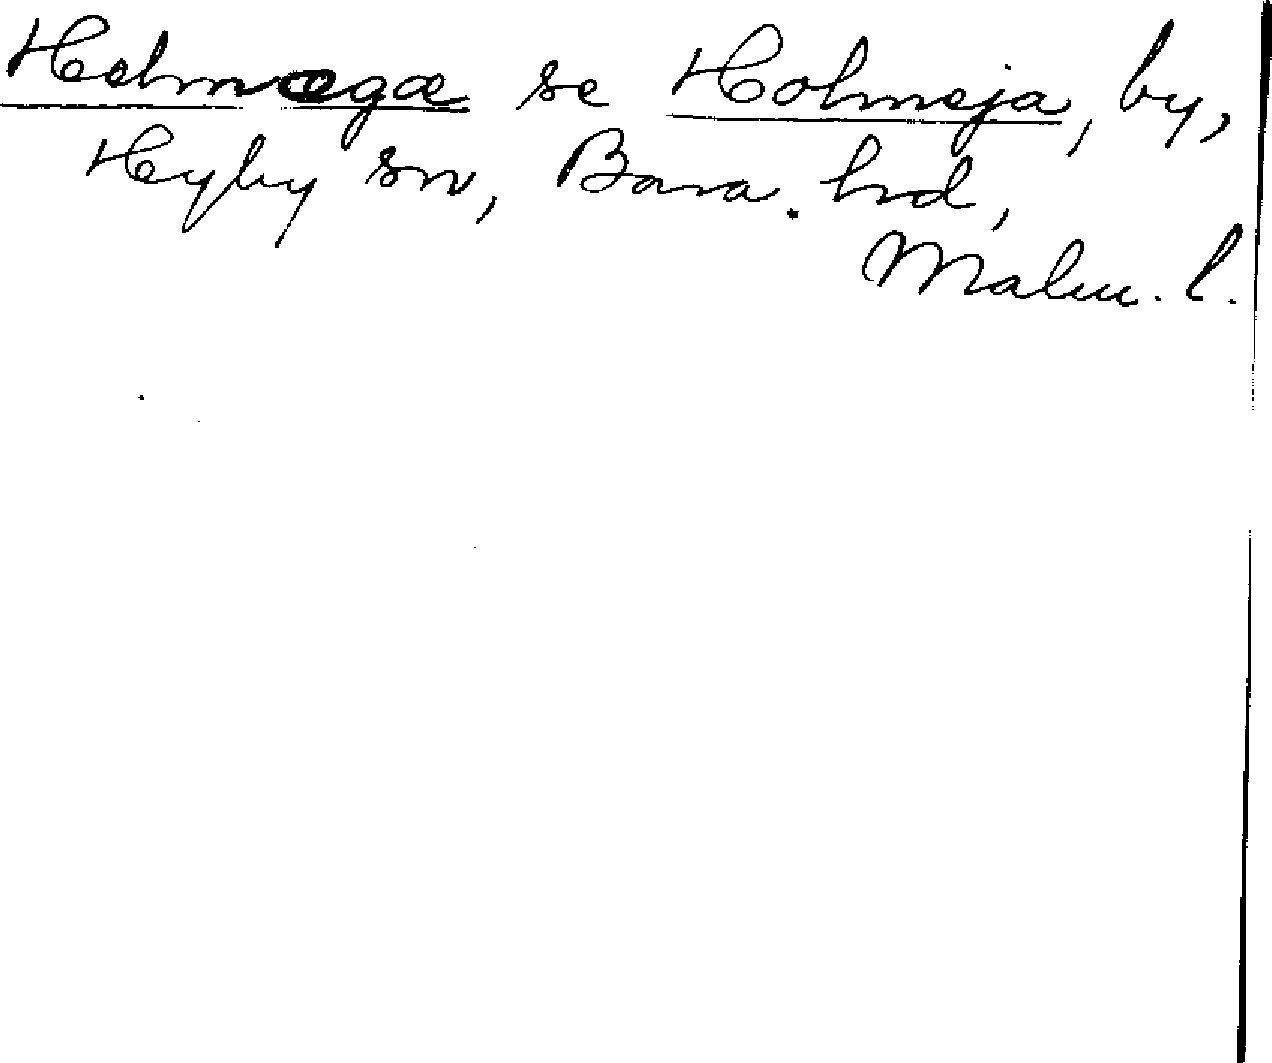 Holmegæ se Holmeja, by,
Hyby sn, Bara hd,
Malm. l.